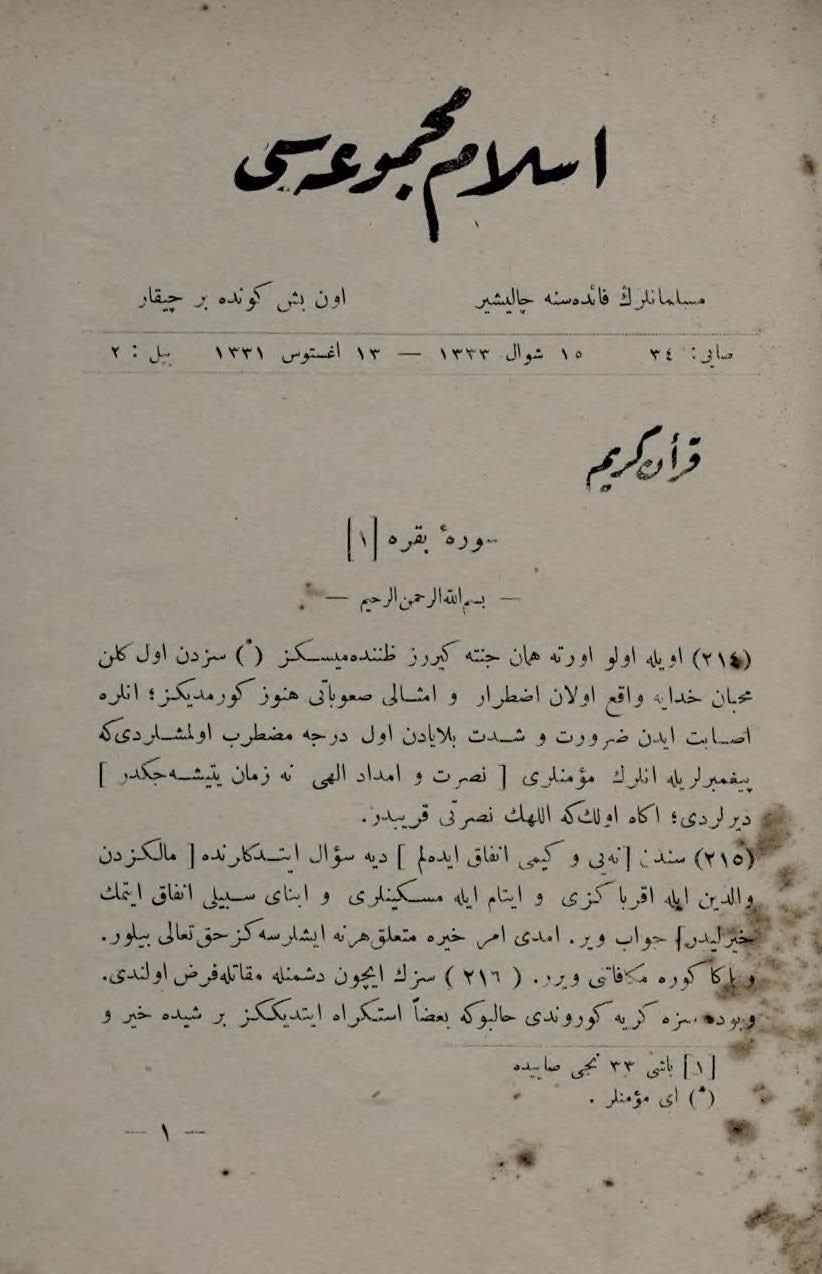 اسلام مجموعه‌سی
مسلمانلرڭ فائده‌سنه چالیشیر اون بش كونده بر چیقار
صایی: ٣٤ ١٥ شوال ١٣٣٣ — ١٣ اغستوس ١٣٣١ ییل : ٢
قرأن كریم
سورهٔ بقره [١]
— بسم الله الرحمن الرحیم —
(٢١٤) اویله اولو اورته همان جنته كیررز ظننده‌میسـكز (*) سزدن اول كلن
محبان خدایه واقع اولان اضطرار و امثـالی صعوباتی هنوز كورمدیكز؛ انلره
اصـابت ایدن ضرورت و شـدت بلایادن اول درجه مضطرب اولمشـلردی‌كه
پیغمبرلریله انلرك مؤمنلری [ نصرت و امداد الهی نه زمان یتیشـه‌جكدر ]
دیرلردی؛ اكاه اولك‌كه اللهك نصرتی قریبدر.
(٢١٥) سندن [نه‌یی و كیمی انفاق ایده‌لم ] دیه سؤال ایتـدكارنده [ مالكزدن
والدین ایله اقرباكزی و ایتام ایله مسـكینلری و ابنای سـبیلی انفاق ایتمك
خیرلیدر] جواب ویر. امدی امر خیره متعلق هرنه ایشلرسه‌كز حق تعالی بیلور.
و اكا كوره مكافاتی ویرر. ( ٢١٦ ) سزك ایچون دشمنله مقاتله فرض اولندی.
وبوده سزه كریه كوروندی حالبوكه بعضاً استـكراه ایتدیكـكز بر شیده خیر و
[١] باشی ٣٣ نجی صاییده
(*) ای مؤمنلر .
— ١ —